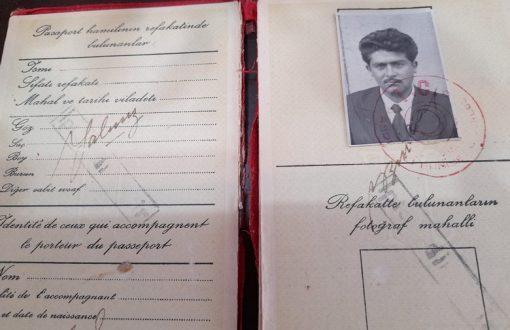 Pasaport hamilinin refakatinde
bulunanlar:
İsmi
Sıfatı refakati
Mahal ve tarihi viladeti
Göz
Saç
Boy
Burun
Diğer sabit evsaf
Identité de ceux qui accompagnent
le porteur du passeport
Nom
lité de l'accompagnant
et date de naissance
Refakatte bulunanların
fotoğraf mahalli